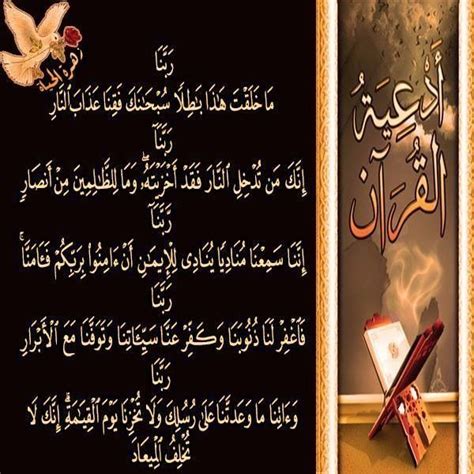 أدعية
القرآن
زهرة الحياة
رَبَّنَا
مَا خَلَقْتَ هَٰذَا بَٰطِلًا سُبْحَٰنَكَ فَقِنَا عَذَابَ ٱلنَّارِ
رَبَّنَآ
إِنَّكَ مَن تُدْخِلِ ٱلنَّارَ فَقَدْ أَخْزَيْتَهُۥۖ وَمَا لِلظَّٰلِمِينَ مِنْ أَنصَارٍ
رَّبَّنَآ
إِنَّنَا سَمِعْنَا مُنَادِيًا يُنَادِى لِلْإِيمَٰنِ أَنْ ءَامِنُوا۟ بِرَبِّكُمْ فَـَٔامَنَّاۚ
رَبَّنَا
فَٱغْفِرْ لَنَا ذُنُوبَنَا وَكَفِّرْ عَنَّا سَيِّـَٔاتِنَا وَتَوَفَّنَا مَعَ ٱلْأَبْرَارِ
رَبَّنَا
وَءَاتِنَا مَا وَعَدتَّنَا عَلَىٰ رُسُلِكَ وَلَا تُخْزِنَا يَوْمَ ٱلْقِيَٰمَةِۗ إِنَّكَ لَا
تُخْلِفُ ٱلْمِيعَادَ